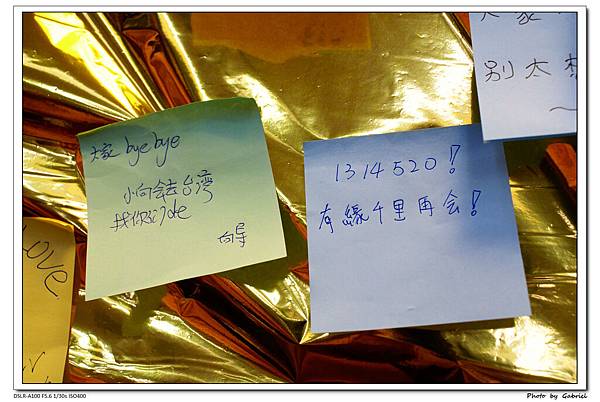 大家 bye bye
小向会去台湾
找你们de
向导
1314520!
有緣千里再会!
别太想
~
Love
DSLR-A100 F5.6 1/30s ISO400
Photo by Gabriel